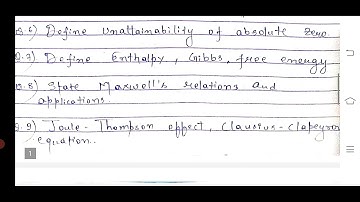 Q.6) Define Unattainability of absolute zero.
Q.7) Define Enthalpy, Gibbs, free energy
Q.8) State Maxwell's relations and
applications
Q.9) Joule-Thompson effect, Clausius-Clapeyron
equation..
1